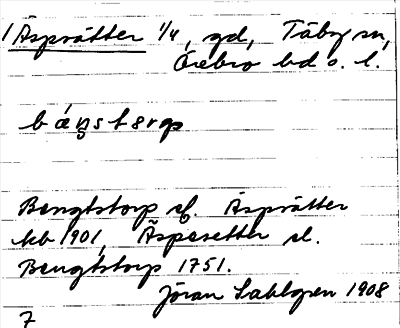 1 Äsprätter 1/4, gd, Täby sn,
Örebro hd o. l.
Bengtstorp el. Äsprätter
kb 1901, Äspesetter el.
Bengtstorp 1751.
Jöran Sahlgren 1908
7